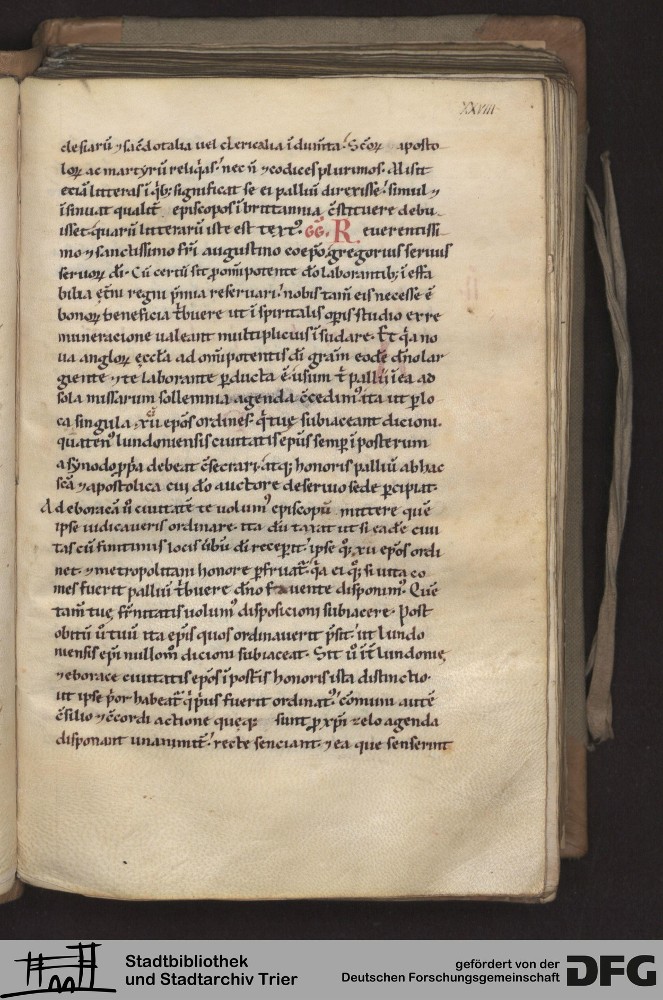 XXVIII
clesiarū ⁊ sac̄dotalia uel clericalia īdum̄ta. Sc̄oꝝ aposto
loꝝ ac martyrū reliq̇as. nec ñ ⁊ codices plurimos. Misit
eciā litteras ī q̇b; significat se ei palliū direxisse. simul ⁊
īsinuat qualit̄ episcopos ī brittannia c̄stituere debu
isset. quarū litterarū iste est textꝰ. GG. Reuerentissi
mo ⁊ sanctissimo fr̄i augustino coep̄o, gregorius seruus
seruoꝝ dī. Cū certū sit ꝓ om̄ipotente dō laborantib; ī effa
bilia et̄ni regni p̄mia reseruari. nobis tam̄ eis necesse ē
bonoꝝ beneficia t̄buere ut ī spiritalis oꝑis studio ex re
muneracione ualeant multiplicius īsudare. Et q̇a no
ua angloꝝ eccl̄a ad om̄ipotentis dī grām eodē dn̄o lar
giente ⁊ te laborante ꝑducta ē. usum t̄ pallii ī ea ad
sola missarum sollemnia agenda c̄cedimꝰ. ita ut ꝑ lo
ca singula .xii. ep̄os ordines. q̇ tuę subiaceant dicioni.
quatenꝰ lundoniensis ciuitatis ep̄us semꝑ ī posterum
a synodo ꝓp̄a debeat c̄secrari. atq; honoris palliū ab hac
sc̄a ⁊ apostolica cui dō auctore deseruio sede ꝑcipiat.
Ad eboracā ū ciuitatē te uolumꝰ episcopū mittere quē
ipse iudicaueris ordinare. ita dū taxat ut si eadē ciui
tas cū finitimis locis ūbū dī receꝑit. ipse q;. xii ep̄os ordi
net. ⁊ metropolitani honore ꝑfruat̄. q̇a ei q; si uita co
mes fuerit palliū t̄buere dn̄o fauente disponimꝰ. Quē
tam̄ tuę fr̄nitatis uolumꝰ disposicioni subiacere. Post
obitū ū tuū ita ep̄is quos ordinauerit p̄sit. ut lundo
niensis ep̄i nullom̄ dicioni subiaceat. Sit ū īt̄ lundonię
⁊ eborace ciuitatis ep̄os ī post̄is honoris ista distinctio.
ut ipse p̄or habeat̄ q̇ p̄us fuerit ordinatꝰ. cōmuni autē
c̄silio ⁊ c̄cordi actione quęq; sunt ꝑ xp̄i zelo agenda
disponant unanimit̄. recte senciant. ⁊ ea que senserint
Stadtbibliothek
und Stadtarchiv Trier
gefördert von der
Deutschen Forschungsgemeinschaft
DFG